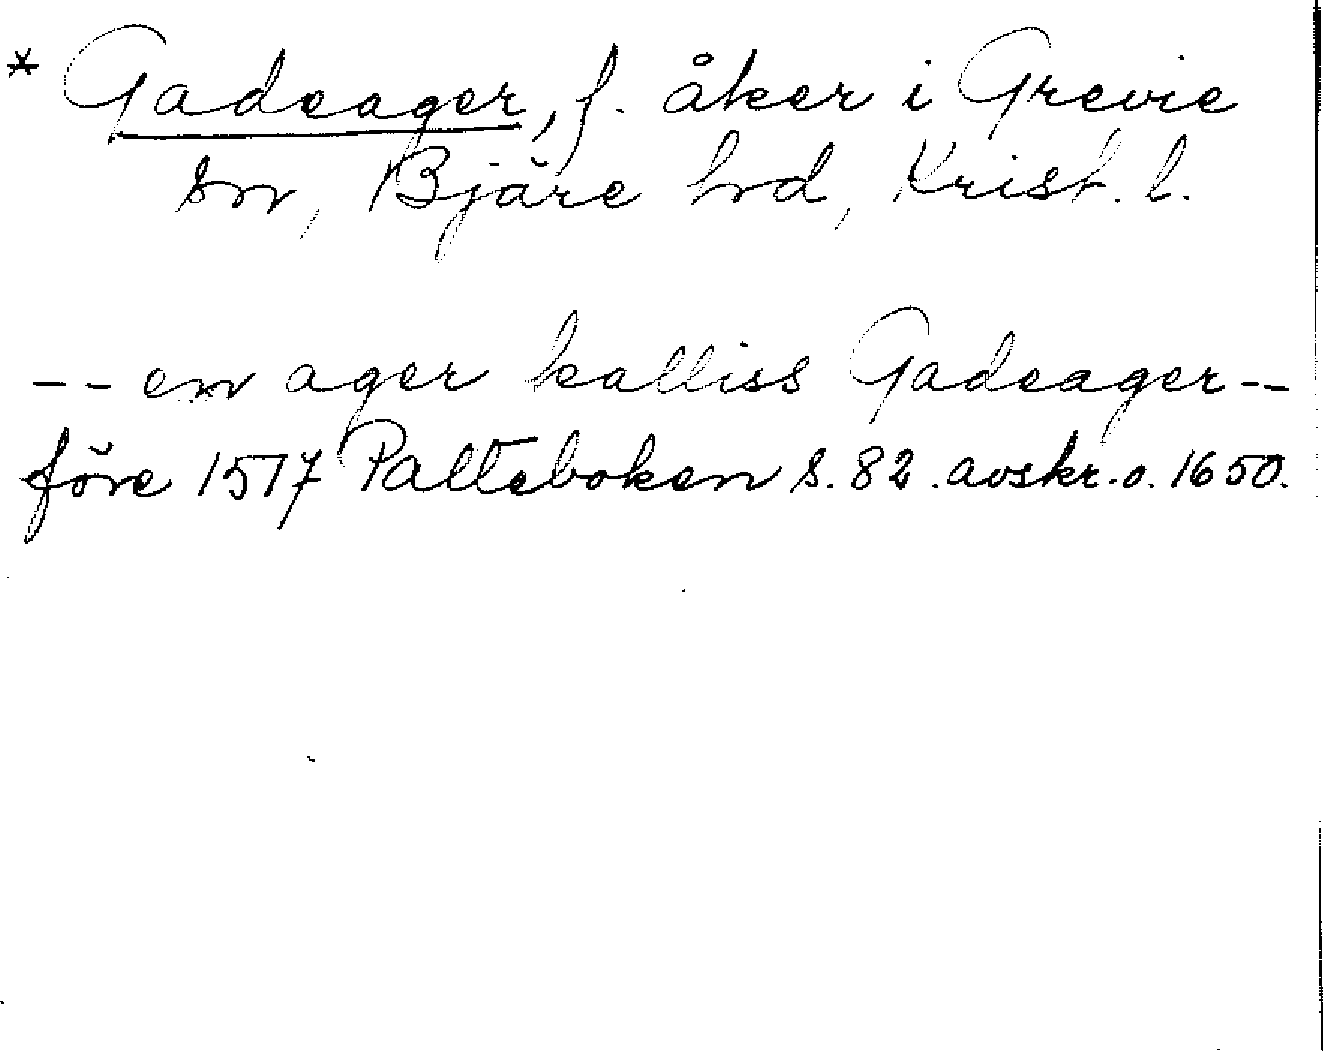 * Gadeager, f. åker i Grevie
sn, Bjäre hd, Krist. l.
-- en ager kalliss Gadeager --
före 1517 Palteboken s. 82. avskr. o. 1650.